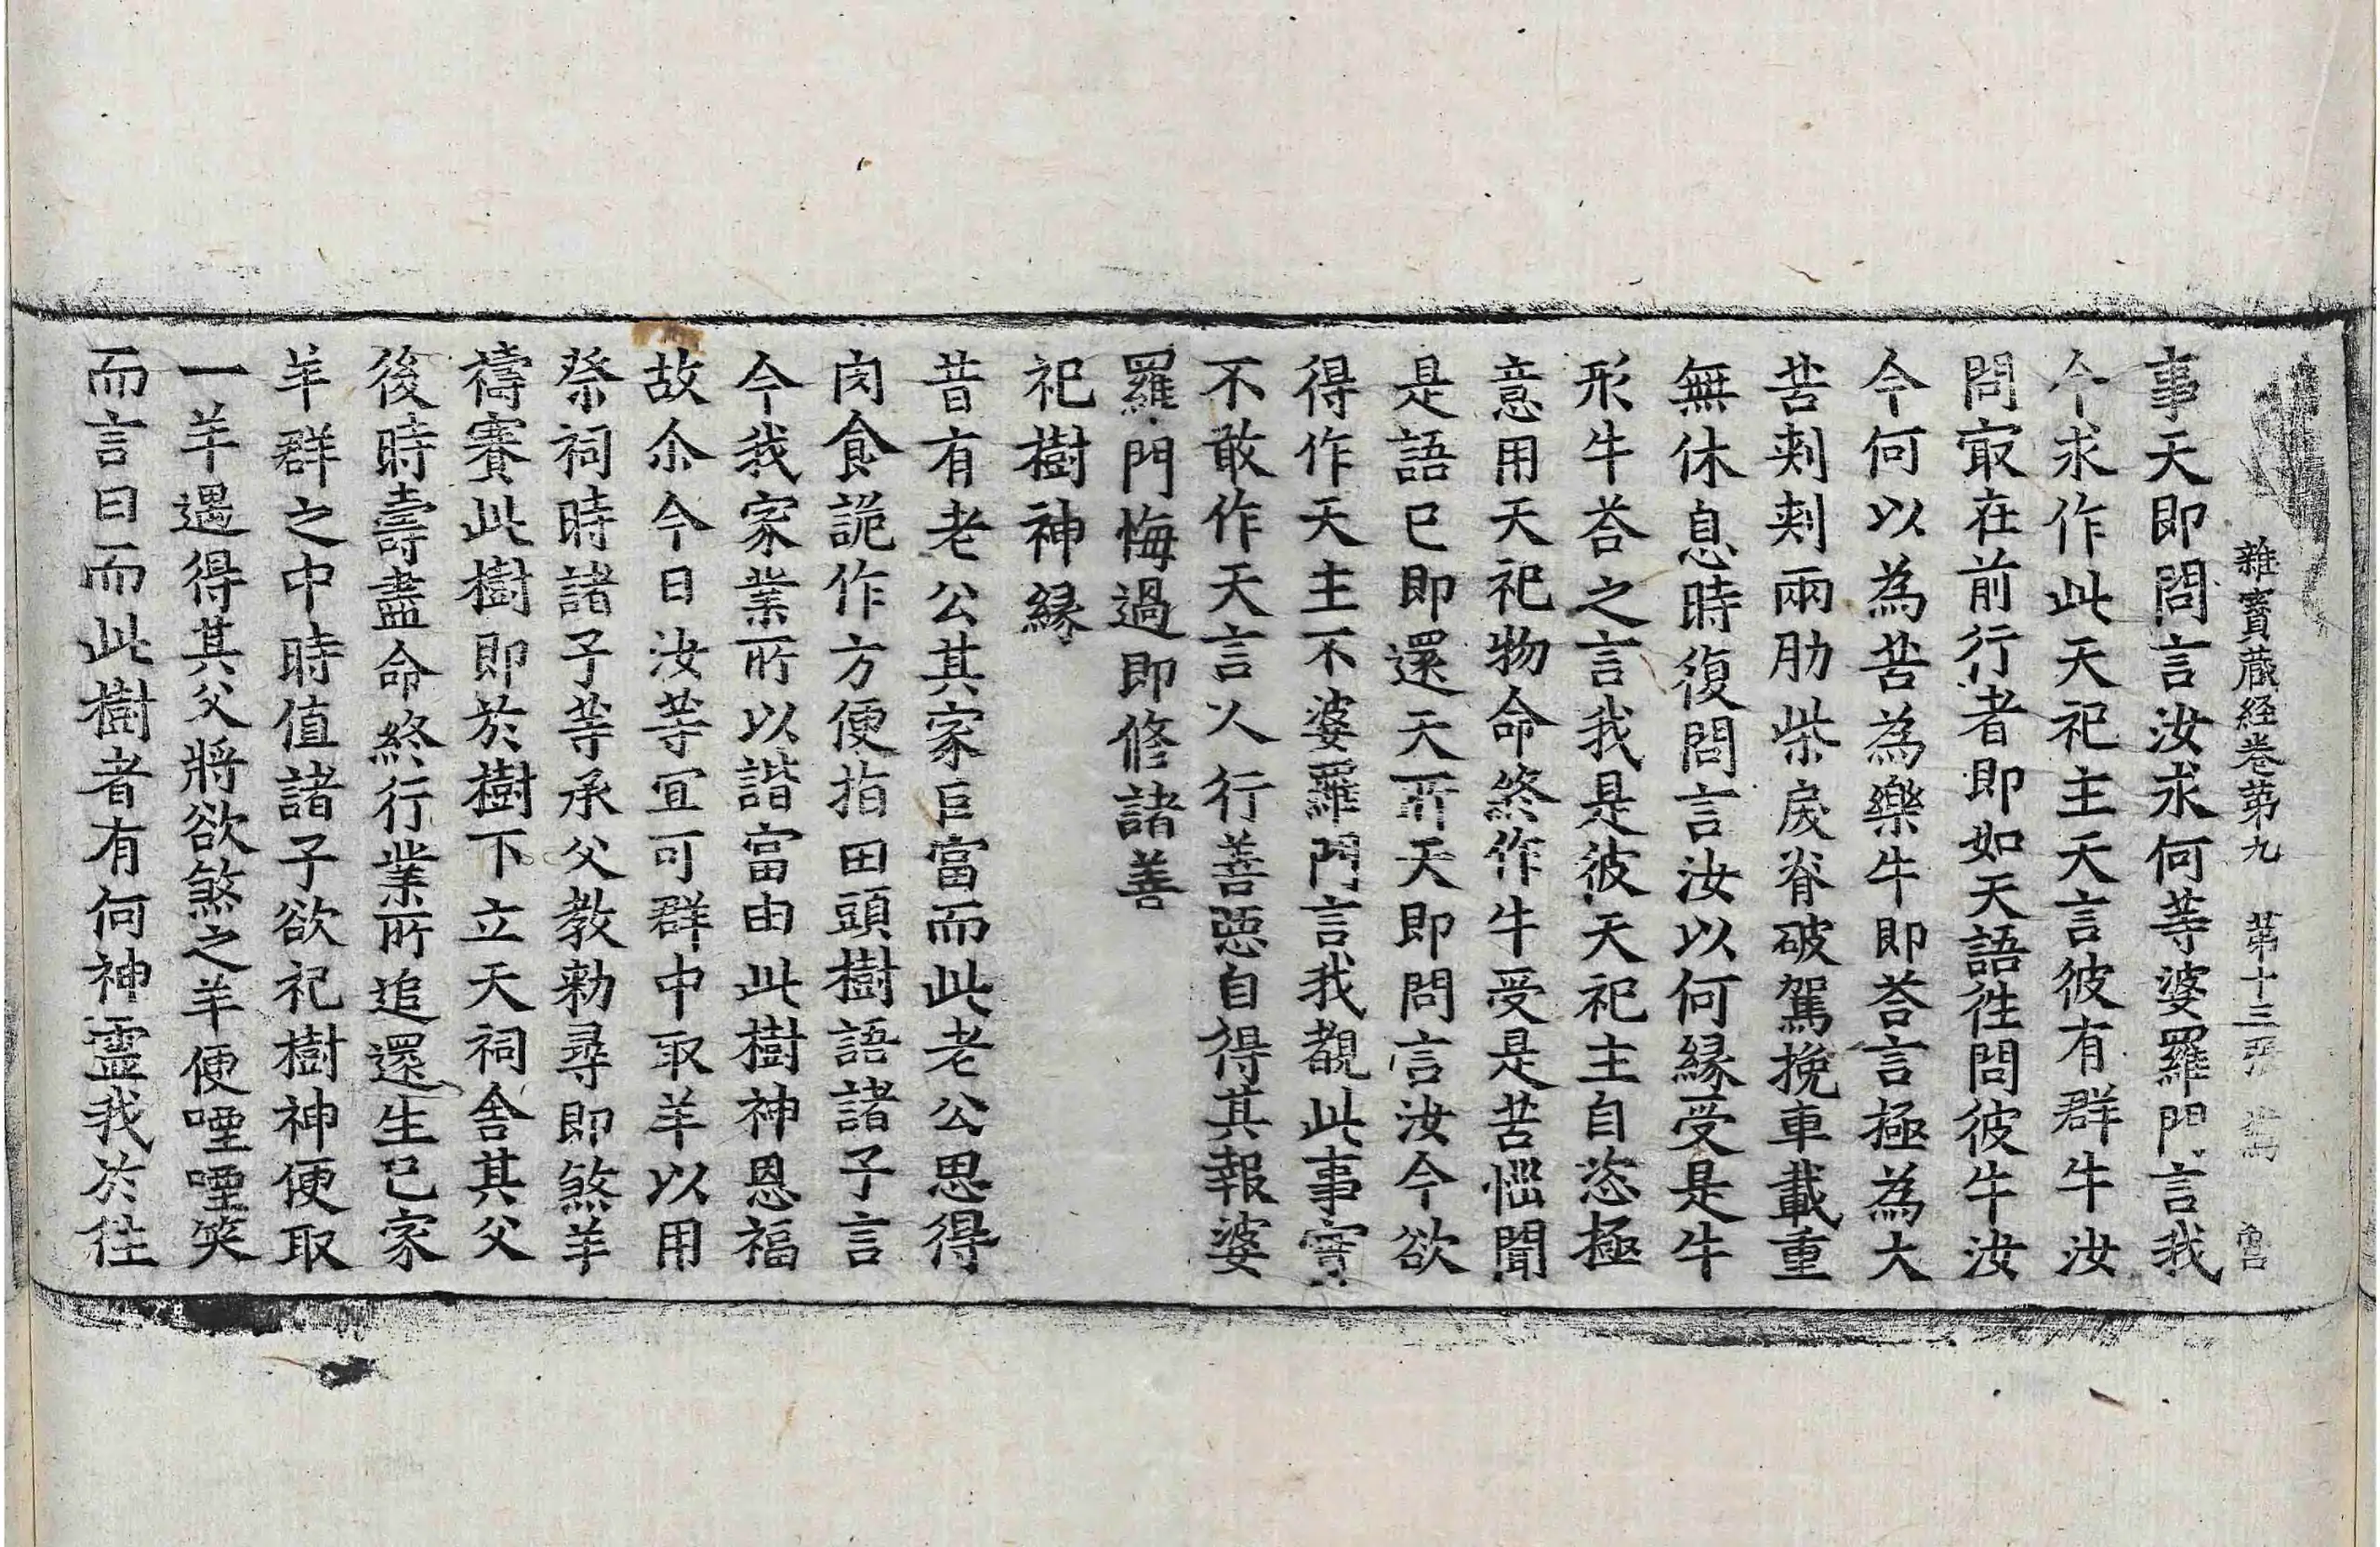 雜寳蔵経巻第九 第十三張
事天即問言汝求何等婆羅門言我
今求作此天祀主天言彼有群牛汝
問冣在前行者即如天語徃問彼牛汝
今何以為苦為樂牛即荅言極為大
苦刾刾兩肋柴戾脊破駕挽車載重
無休息時復問言汝以何縁受是牛
形牛荅之言我是彼天祀主自恣極
意用天祀物命終作牛受是苦惱聞
是語已即還天所天即問言汝今欲
得作天主不婆羅門言我觀此事實
不敢作天言人行善惡自得其報婆
羅門悔過即修諸善
祀樹神縁
昔有老公其家巨富而此老公思得
肉食詭作方便指田頭樹語諸子言
今我家業所以諧富由此樹神恩福
故尒今日汝等冝可群中取羊以用
祭祠時諸子等承父教勅尋即煞羊
禱賽此樹即於樹下立天祠舍其父
後時壽盡命終行業所追還生己家
羊群之中時值諸子欲祀樹神便取
一羊遇得其父將欲煞之羊便㗌㗌笑
而言曰而此樹者有何神靈我於徃